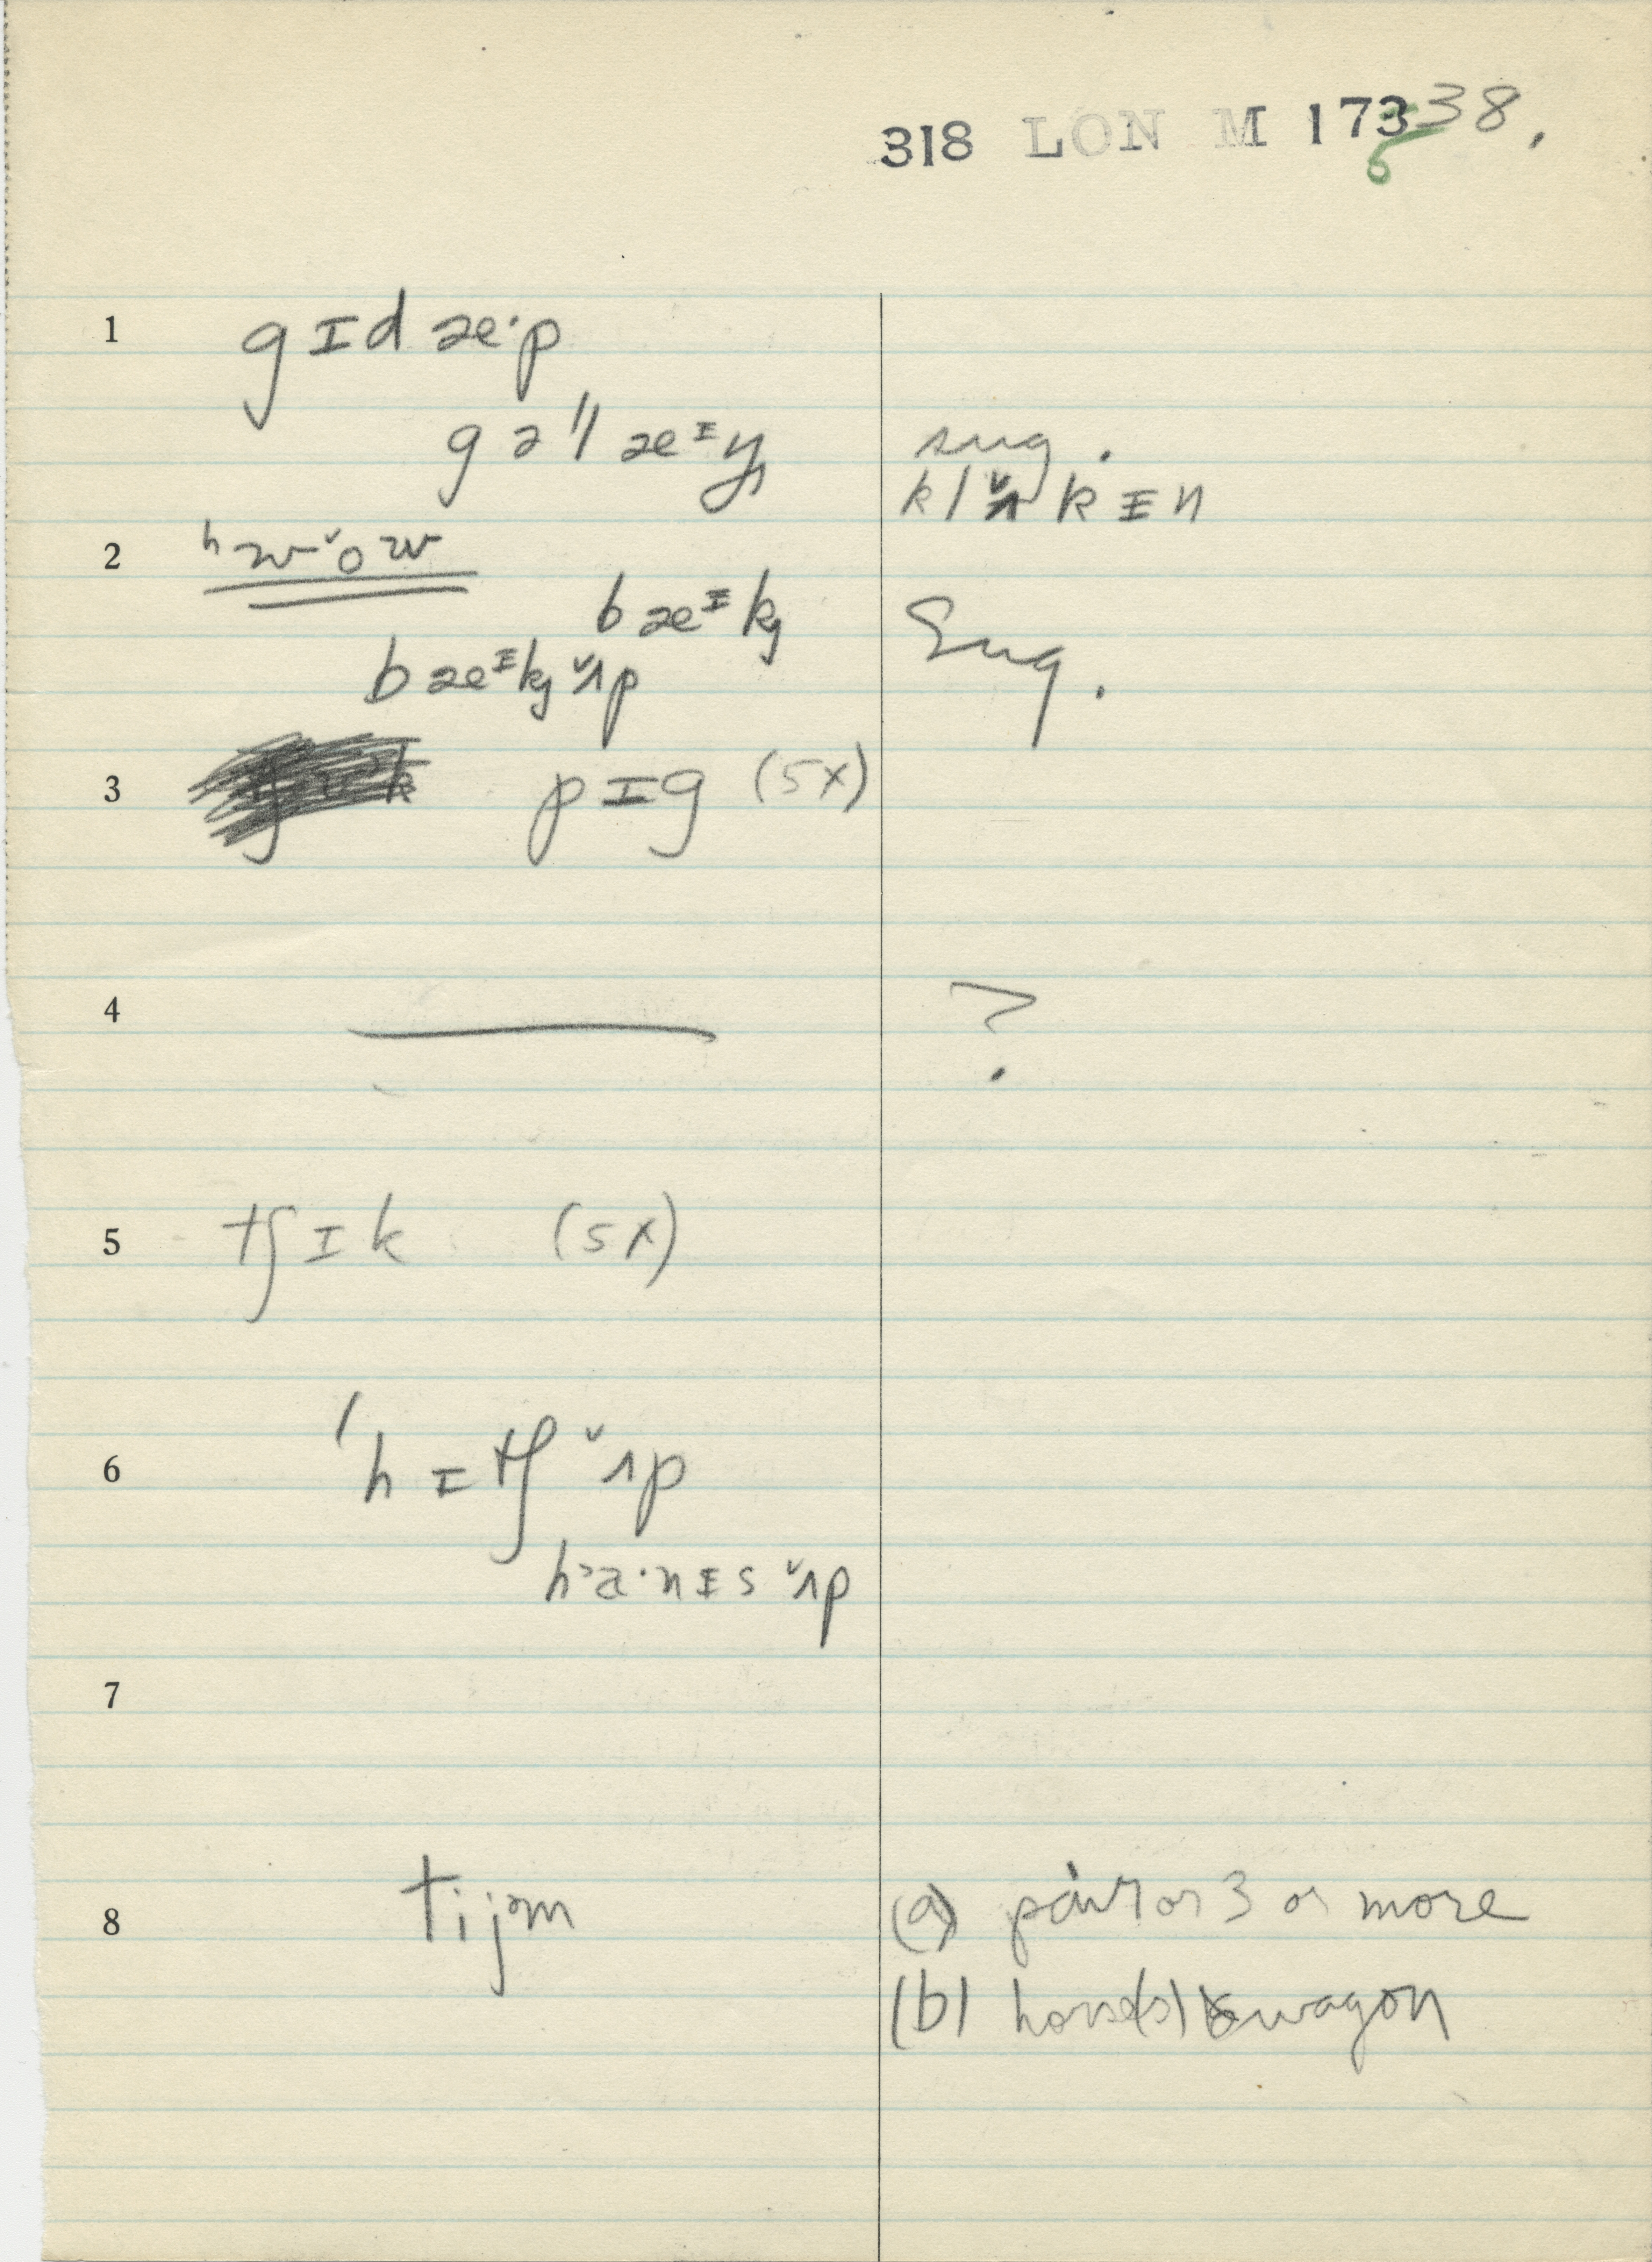 318 LON M 173 38.
6
1 gɪdæ·p
gəllæᶦy sug.
klʌ̌kɪn
2 ʰwˇow
bæᶦkj Sug.
bæᶦkjˇʌp
3 pɪg (5x)
4 ?
5 tʃɪk (5x)
6 'hɪtʃˇʌp
h꞉a·nɪsˇʌp
7
8 tijəm (a) pair or 3 or more
(b) horse(s) & wagon